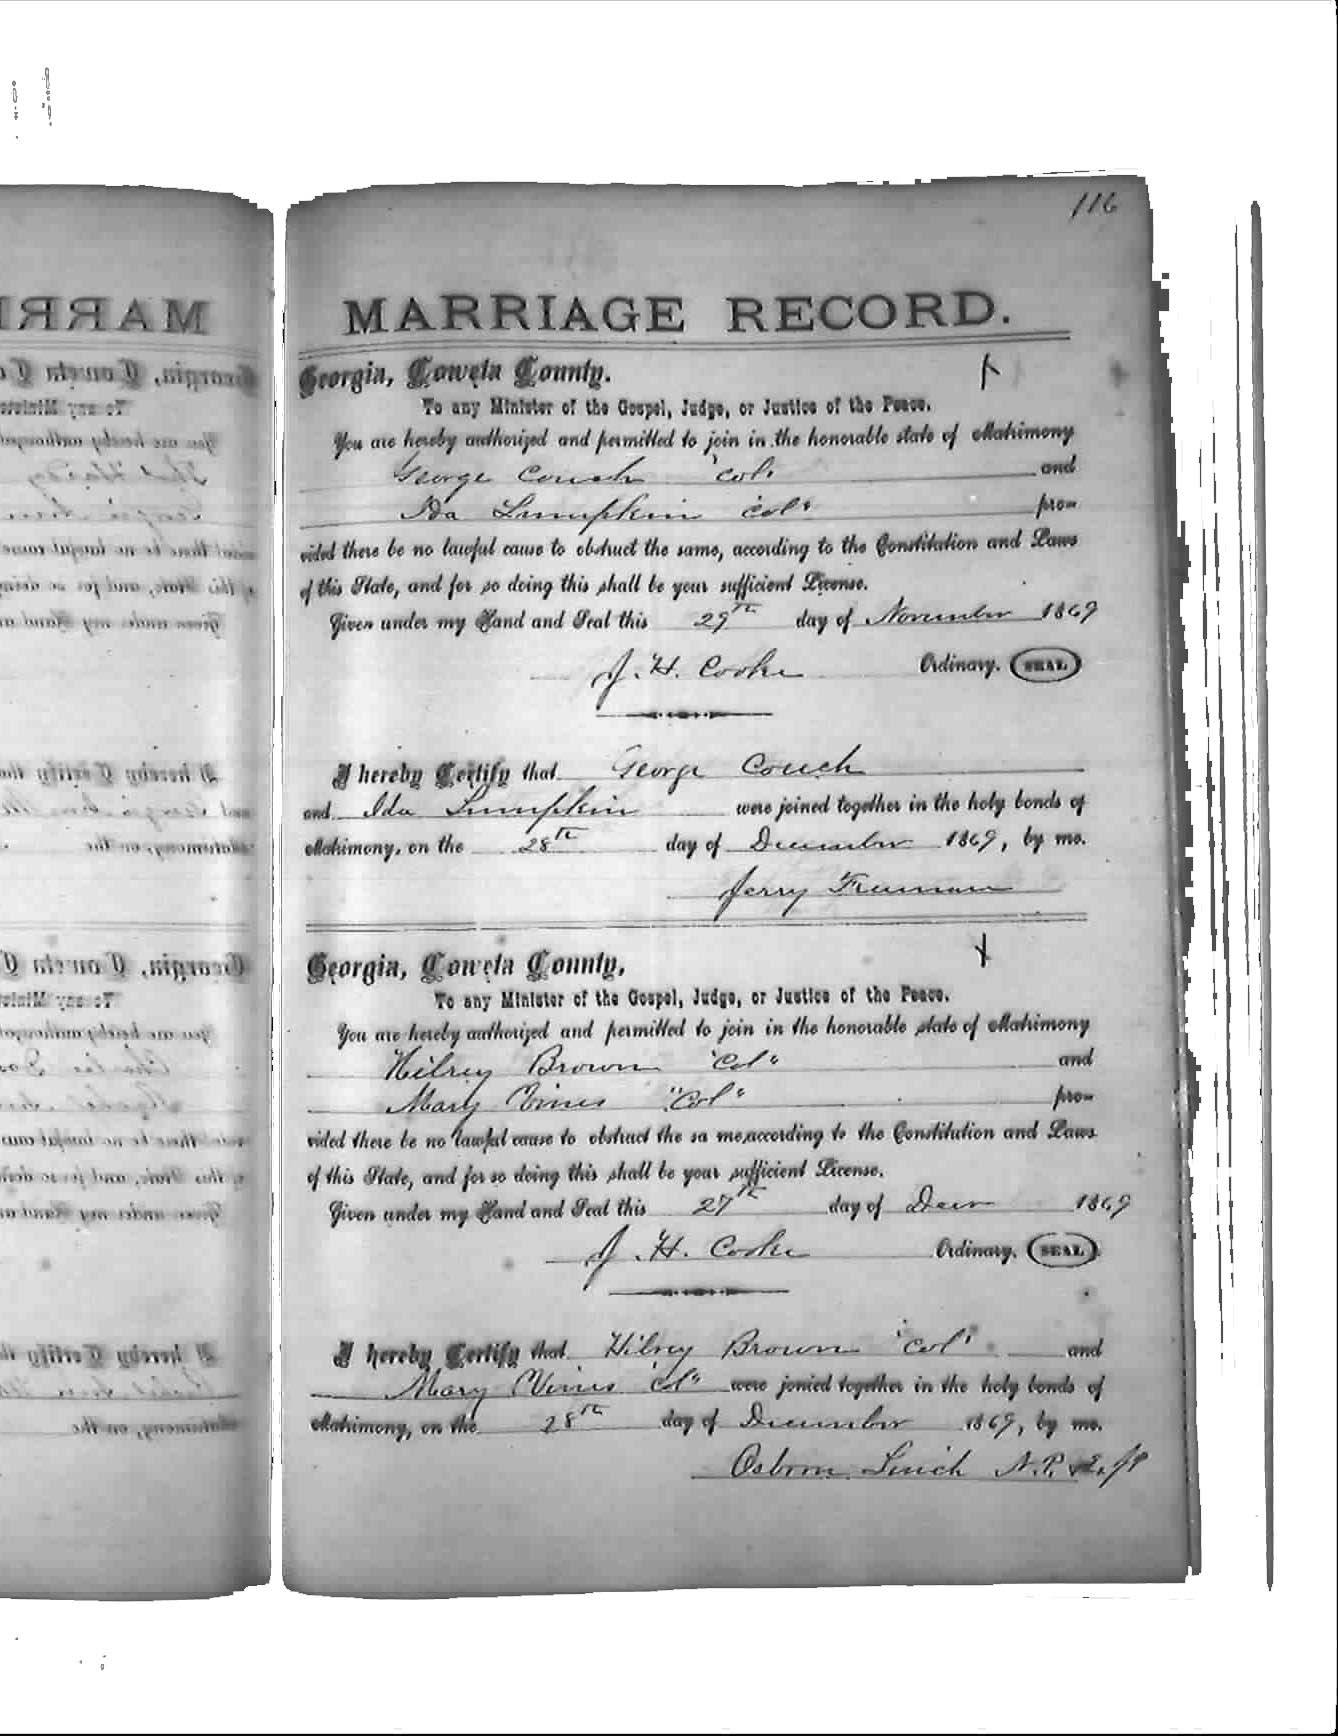 116
MARRIAGE RECORD.
Georgia, Coweta County.
To any Minister of the Gospel, Judge, or Justice of the Peace.
You are hereby authorized and permitted to join in the honorable state of Matrimony
George Couch "Col" and
Ida Lumpkin "Col" pro-
vided there be no lawful cause to obstruct the same, according to the Constitution and Laws
of this State, and for so doing this shall be your sufficient License.
Given under my Hand and Seal this 29th day of November 1869
J. H. Cooke Ordinary. SEAL
I hereby Certify that George Couch
and Ida Lumpkin were joined together in the holy bonds of
Matrimony, on the 28th day of December 1869, by me.
Jerry Freeman
Georgia, Coweta County,
To any Minister of the Gospel, Judge, or Justice of the Peace.
You are hereby authorized and permitted to join in the honorable state of Matrimony
Hilrey Brown "Col" and
Mary Vines "Col" pro-
vided there be no lawful cause to obstruct the sa me,according to the Constitution and Laws
of this State, and for so doing this shall be your sufficient License.
Given under my Hand and Seal this 27th day of Decr 1869
J. H. Cooke Ordinary. SEAL
I hereby Certify that Hilrey Brown "Col" and
Mary Vines "Col" were jonied together in the holy bonds of
Matrimony, on the 28th day of December 1869, by me.
N.P.